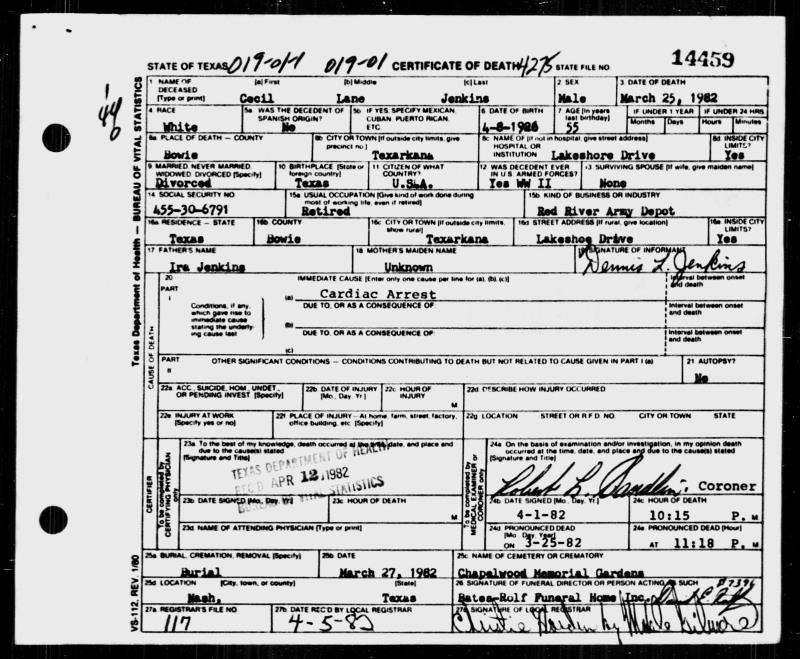 STATE OF TEXAS 019-011 019-01 CERTIFICATE OF DEATH 4275 STATE FILE NO. 14459
Texas Department of Health — BUREAU OF VITAL STATISTICS
VS-112, REV. 1/80
1 NAME OF DECEASED [Type or print] [a] First [b] Middle [c] Last 2 SEX 3 DATE OF DEATH
Cecil Lane Jenkins Male March 25, 1982
4 RACE 5a WAS THE DECEDENT OF SPANISH ORIGIN? 5b IF YES, SPECIFY MEXICAN, CUBAN, PUERTO RICAN, ETC 6 DATE OF BIRTH 7 AGE [In years last birthday] IF UNDER 1 YEAR IF UNDER 24 HRS
Months Days Hours Minutes
White No 4-8-1926 55
8a PLACE OF DEATH — COUNTY 8b CITY OR TOWN [If outside city limits, give precinct no.] 8c NAME OF [If not in hospital, give street address] HOSPITAL OR INSTITUTION 8d INSIDE CITY LIMITS?
Bowie Texarkana Lakeshore Drive Yes
9 MARRIED, NEVER MARRIED, WIDOWED, DIVORCED [Specify] 10 BIRTHPLACE [State or foreign country] 11 CITIZEN OF WHAT COUNTRY? 12 WAS DECEDENT EVER IN U.S. ARMED FORCES? 13 SURVIVING SPOUSE [If wife, give maiden name]
Divorced Texas U.S.A. Yes WW II None
14 SOCIAL SECURITY NO 15a USUAL OCCUPATION [Give kind of work done during most of working life, even if retired] 15b KIND OF BUSINESS OR INDUSTRY
455-30-6791 Retired Red River Army Depot
16a RESIDENCE - STATE 16b COUNTY 16c CITY OR TOWN [If outside city limits, show rural] 16d STREET ADDRESS [If rural, give location] 16e INSIDE CITY LIMITS?
Texas Bowie Texarkana Lakeshoe Drive Yes
17 FATHER'S NAME 18 MOTHER'S MAIDEN NAME 19 SIGNATURE OF INFORMANT
Ira Jenkins Unknown Dennis L. Jenkins
CAUSE OF DEATH
20 PART I IMMEDIATE CAUSE [Enter only one cause per line for (a), (b), (c)] Interval between onset and death
(a) Cardiac Arrest
Conditions, if any, which gave rise to immediate cause stating the underlying cause last
DUE TO, OR AS A CONSEQUENCE OF: Interval between onset and death
(b)
DUE TO, OR AS A CONSEQUENCE OF: Interval between onset and death
(c)
PART II OTHER SIGNIFICANT CONDITIONS — CONDITIONS CONTRIBUTING TO DEATH BUT NOT RELATED TO CAUSE GIVEN IN PART I (a) 21 AUTOPSY?
No
22a ACC., SUICIDE, HOM., UNDET., OR PENDING INVEST [Specify] 22b DATE OF INJURY [Mo., Day, Yr.] 22c HOUR OF INJURY M 22d DESCRIBE HOW INJURY OCCURRED
22e INJURY AT WORK [Specify yes or no] 22f PLACE OF INJURY—At home, farm, street, factory, office building, etc. [Specify] 22g LOCATION STREET OR R.F.D. NO. CITY OR TOWN STATE
CERTIFIER
CERTIFYING PHYSICIAN only
23a To the best of my knowledge, death occurred at the time, date, and place and due to the cause(s) stated [Signature and Title]
TEXAS DEPARTMENT OF HEALTH
REC'D APR 12, 1982
BUREAU OF VITAL STATISTICS
23b DATE SIGNED [Mo., Day, Yr] 23c HOUR OF DEATH M
23d NAME OF ATTENDING PHYSICIAN [Type or print]
MEDICAL EXAMINER or CORONER only
24a On the basis of examination and/or investigation, in my opinion death occurred at the time, date, and place and due to the cause(s) stated [Signature and Title]
Coroner
24b DATE SIGNED [Mo., Day, Yr.] 24c HOUR OF DEATH
4-1-82 10:15 P. M
24d PRONOUNCED DEAD [Mo. Day Year] 24e PRONOUNCED DEAD [Hour]
ON 3-25-82 AT 11:18 P. M
25a BURIAL, CREMATION, REMOVAL [Specify] 25b DATE 25c NAME OF CEMETERY OR CREMATORY
Burial March 27, 1982 Chapelwood Memorial Gardens
25d LOCATION [City, town, or county] [State] 26 SIGNATURE OF FUNERAL DIRECTOR OR PERSON ACTING AS SUCH #7396
Nash, Texas Bates-Rolf Funeral Home Inc.
27a REGISTRAR'S FILE NO 27b DATE REC'D BY LOCAL REGISTRAR 27c SIGNATURE OF LOCAL REGISTRAR
117 4-5-82